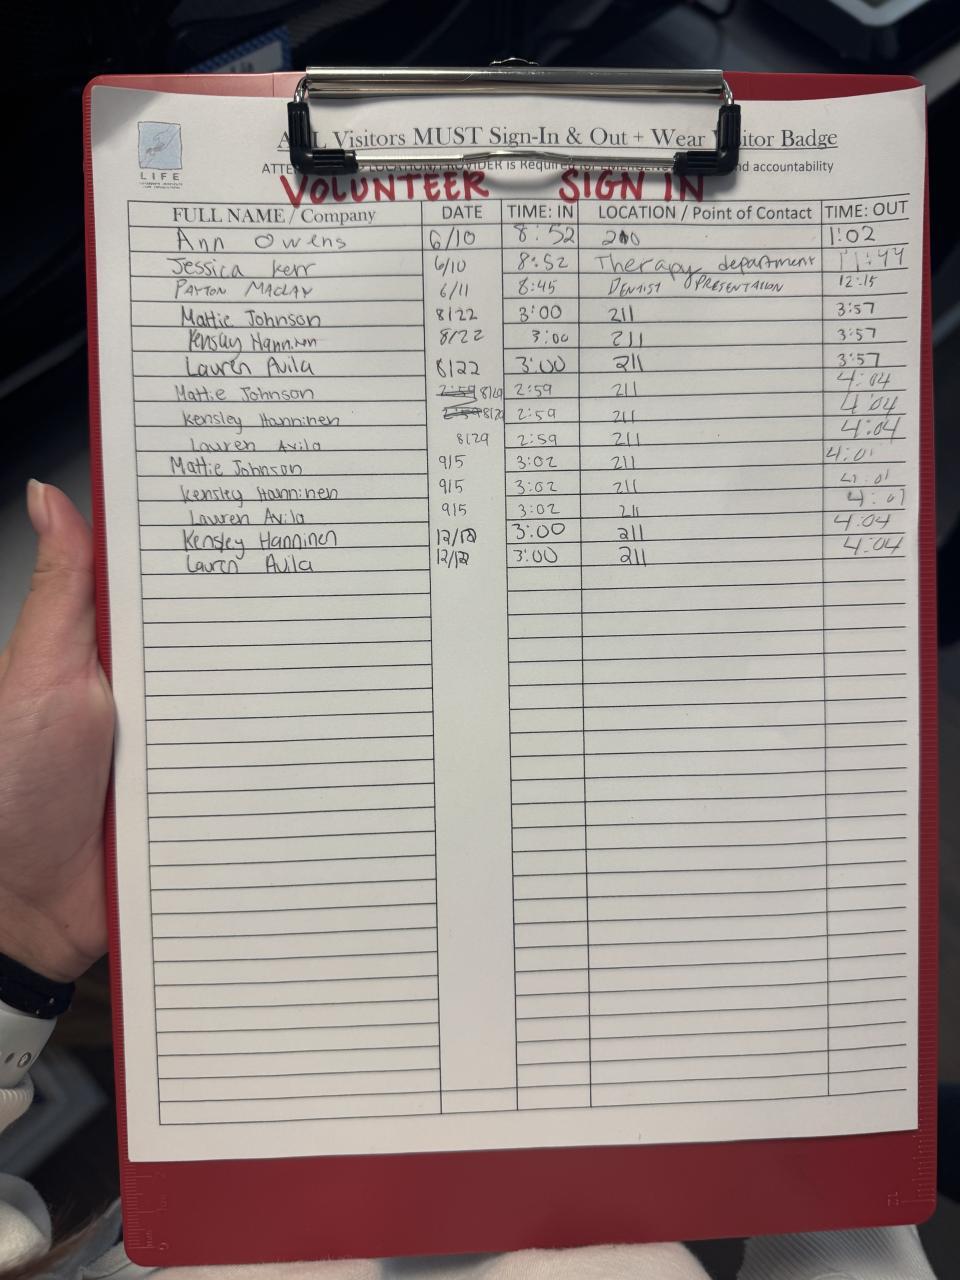 Visitors MUST Sign-In & Out + Wear Badge
LOCATION/PROVIDER is and accountability
LIFE
VOLUNTEER SIGN IN
FULL NAME / Company DATE TIME: IN LOCATION / Point of Contact TIME: OUT
Ann Owens 6/10 8:52 200 1:02
Jessica Kerr 6/10 8:52 Therapy department 11:44
PAYTON MACLAY 6/11 8:45 DENTIST PRESENTATION 12:15
Mattie Johnson 8/22 3:00 211 3:57
Kensley Hanninen 8/22 3:00 211 3:57
Lauren Avila 8/22 3:00 211 3:57
Mattie Johnson 2:59 2:59 211 4:04
Kensley Hanninen 2:59 2:59 211 4:04
Lauren Avila 8/29 2:59 211 4:04
Mattie Johnson 9/5 3:02 211 4:01
Kensley Hanninen 9/5 3:02 211 4:01
Lauren Avila 9/5 3:02 211 4:01
Kensley Hanninen 3:00 211 4:04
Lauren Avila 3:00 211 4:04